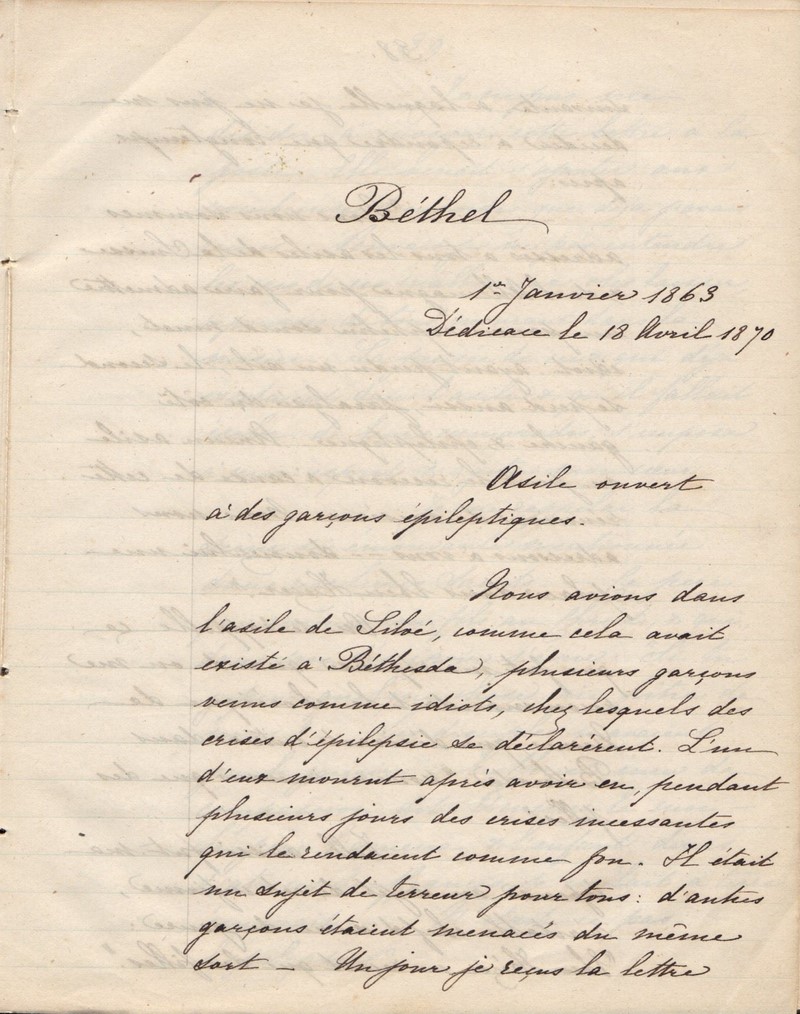 Béthel
1er Janvier 1863
Dédicace le 18 Avril 1870
Asile ouvert
à des garçons épileptiques.
Nous avions dans
l'asile de Siloé, comme cela avait
existé à Béthesda, plusieurs garçons
venus comme idiots, chez lesquels des
crises d'épilepsie se déclarèrent. L'un
d'eux mourut après avoir eu, pendant
plusieurs jours des crises incessantes
qui le rendaient comme fou. Il était
un sujet de terreur pour tous: d'autres
garçons étaient menacés du même
sort — Un jour je reçus la lettre